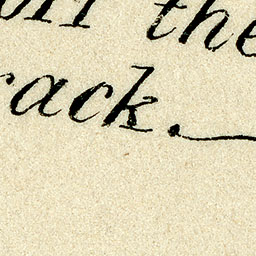 the
rack.